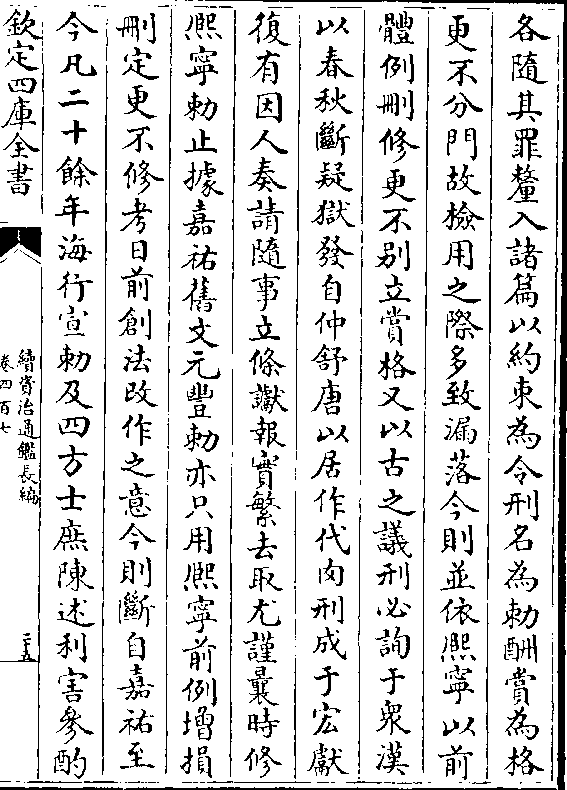 各隨其罪釐入諸篇以約束為令刑名為勅酬賞為格
更不分門故檢用之際多致漏落今則並依熈寧以前
體例刪修更不别立賞格又以古之議刑必詢于衆漢
以春秋斷疑獄發自仲舒唐以居作代肉刑成于宏獻
復有因人奏請隨事立條讞報實繁去取尤謹曩時修
熈寧勅止據嘉祐舊文元豐勅亦只用熈寧前例增損
刪定更不修考日前創法改作之意今則斷自嘉祐至
今凡二十餘年海行宣勅及四方士庶陳述利害參酌
欽定四庫全書
續資治通鑑長編
卷四百七
二五